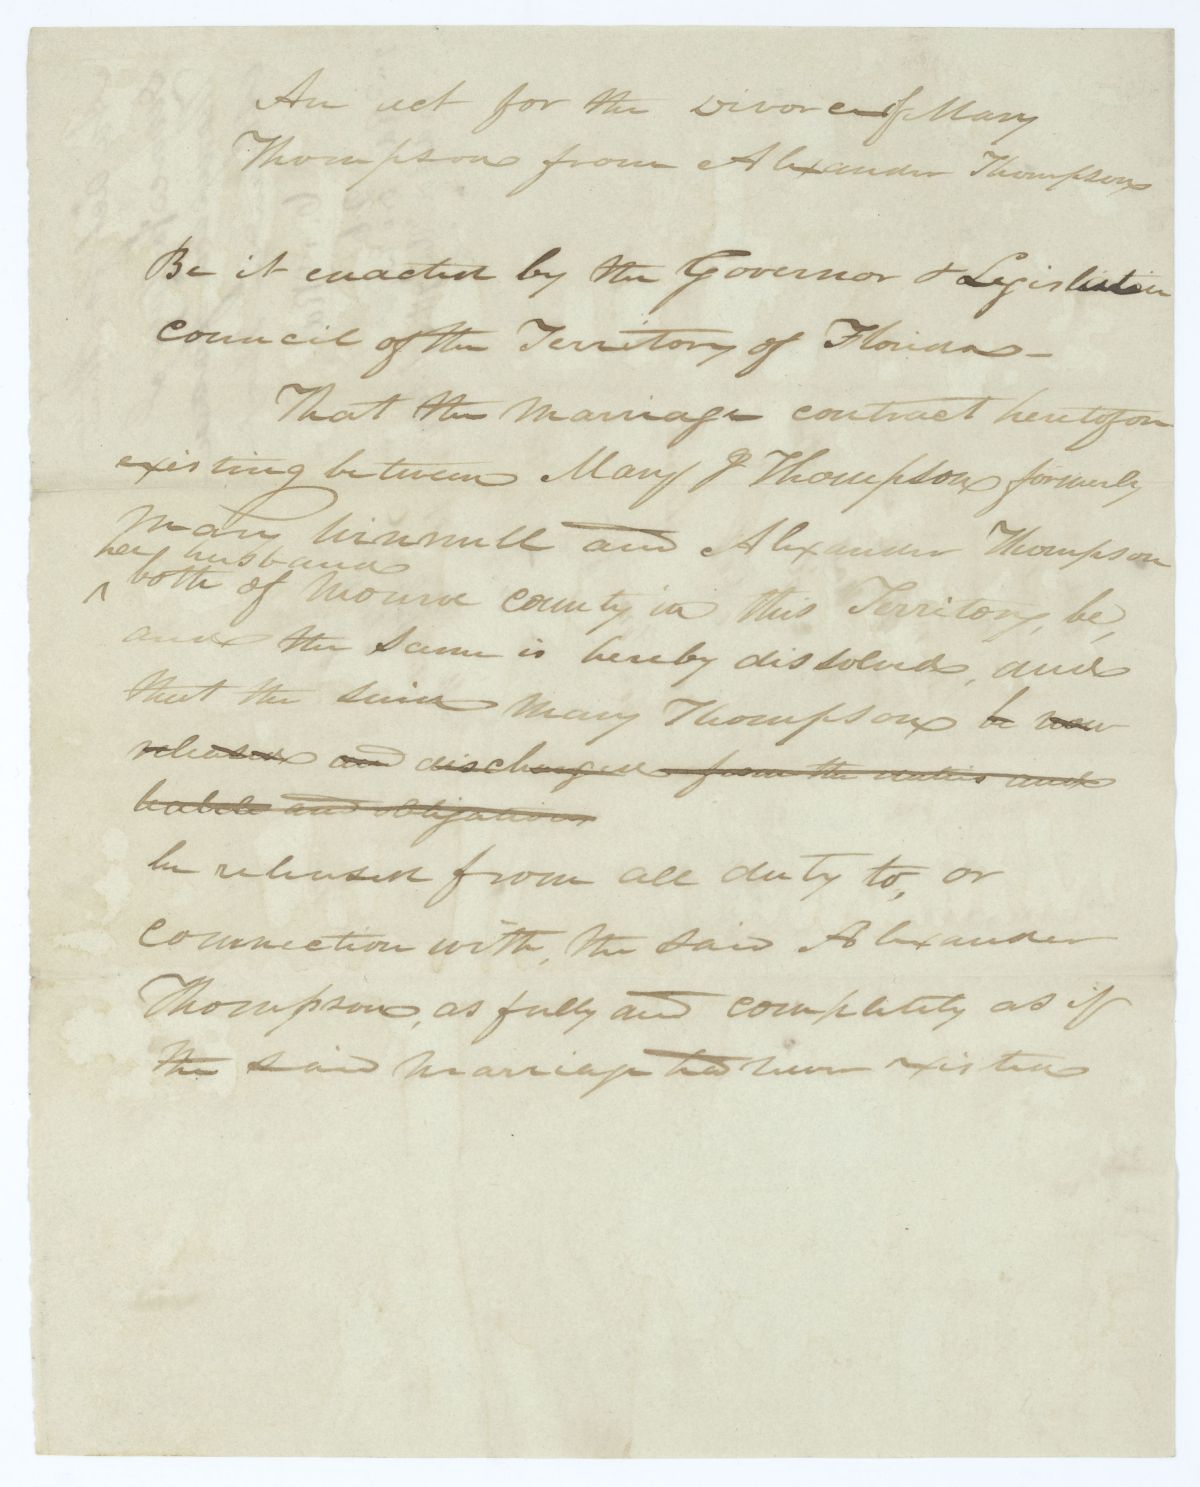 An act for the Divorce of Mary
Thompson from Alexander Thompson
Be it enacted by the Governor & Legislative
council of the Territory of Florida -
That the Marriage contract heretofore
existing between Mary J Thompson formerly
Mary and Alexander Thompson
her husband
^ both of Monroe county in this Territory, be,
and the same is hereby dissolved, and
that the said Mary Thompson be now
released and discharged from the duties and
and obligations
be released from all duty to, or
connection with, the said Alexander
Thompson, as fully and completely as if
the said Marriage had never existed